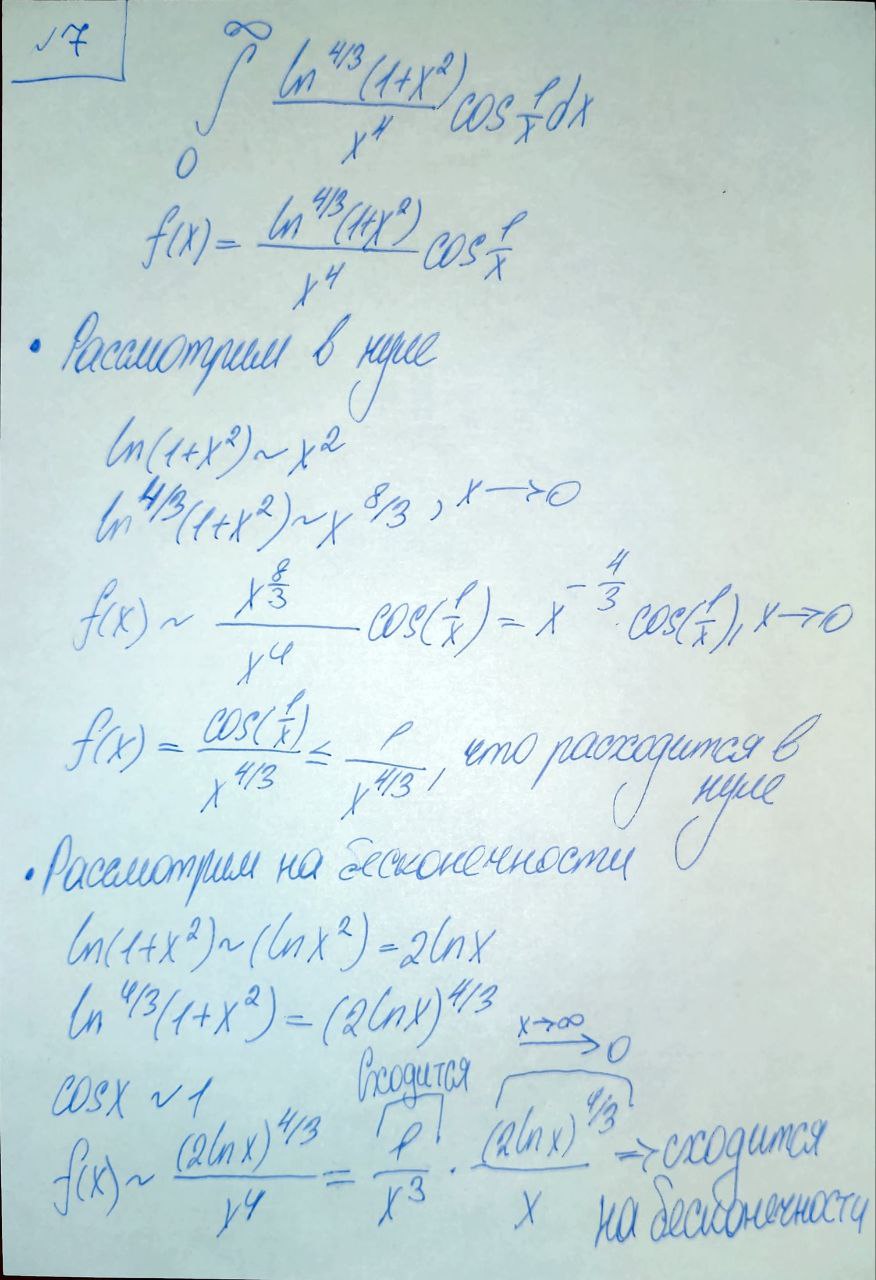 √7
∫₀^∞ ln^{4/3}(1+x²)/x⁴ cos 1/x dx
f(x) = ln^{4/3}(1+x²)/x⁴ cos 1/x
• Рассмотрим в нуле
ln(1+x²) ~ x²
ln^{4/3}(1+x²) ~ x^{8/3}, x → 0
f(x) ~ x^{8/3}/x⁴ cos(1/x) = x^{-4/3} cos(1/x), x → 0
f(x) = cos(1/x)/x^{4/3} ≤ 1/x^{4/3}, что расходится в
нуле
• Рассмотрим на бесконечности
ln(1+x²) ~ (ln x²) = 2ln x
ln^{4/3}(1+x²) = (2ln x)^{4/3}
x→∞ → 0
cos x ~ 1
Сходится
f(x) ~ (2ln x)^{4/3}/x⁴ = 1/x³ · (2ln x)^{4/3}/x => сходится
на бесконечности